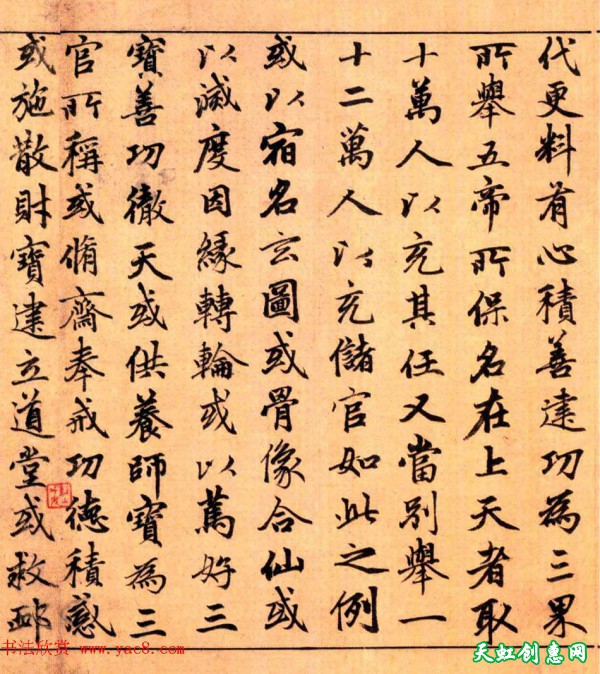 代更料有心積善建功為三果
所舉五帝所保名在上天者取
十萬人以充其任又當別舉一
十二萬人以充儲官如此之例
或以宿名玄圖或骨像合仙或
以滅度因緣轉輪或以篤好三
寶善功徹天或供養師寶為三
官所稱或脩齋奉戒功德積感
或施散財寶建立道堂或救邺
书法欣赏 www.yac8.com
天虹创惠网